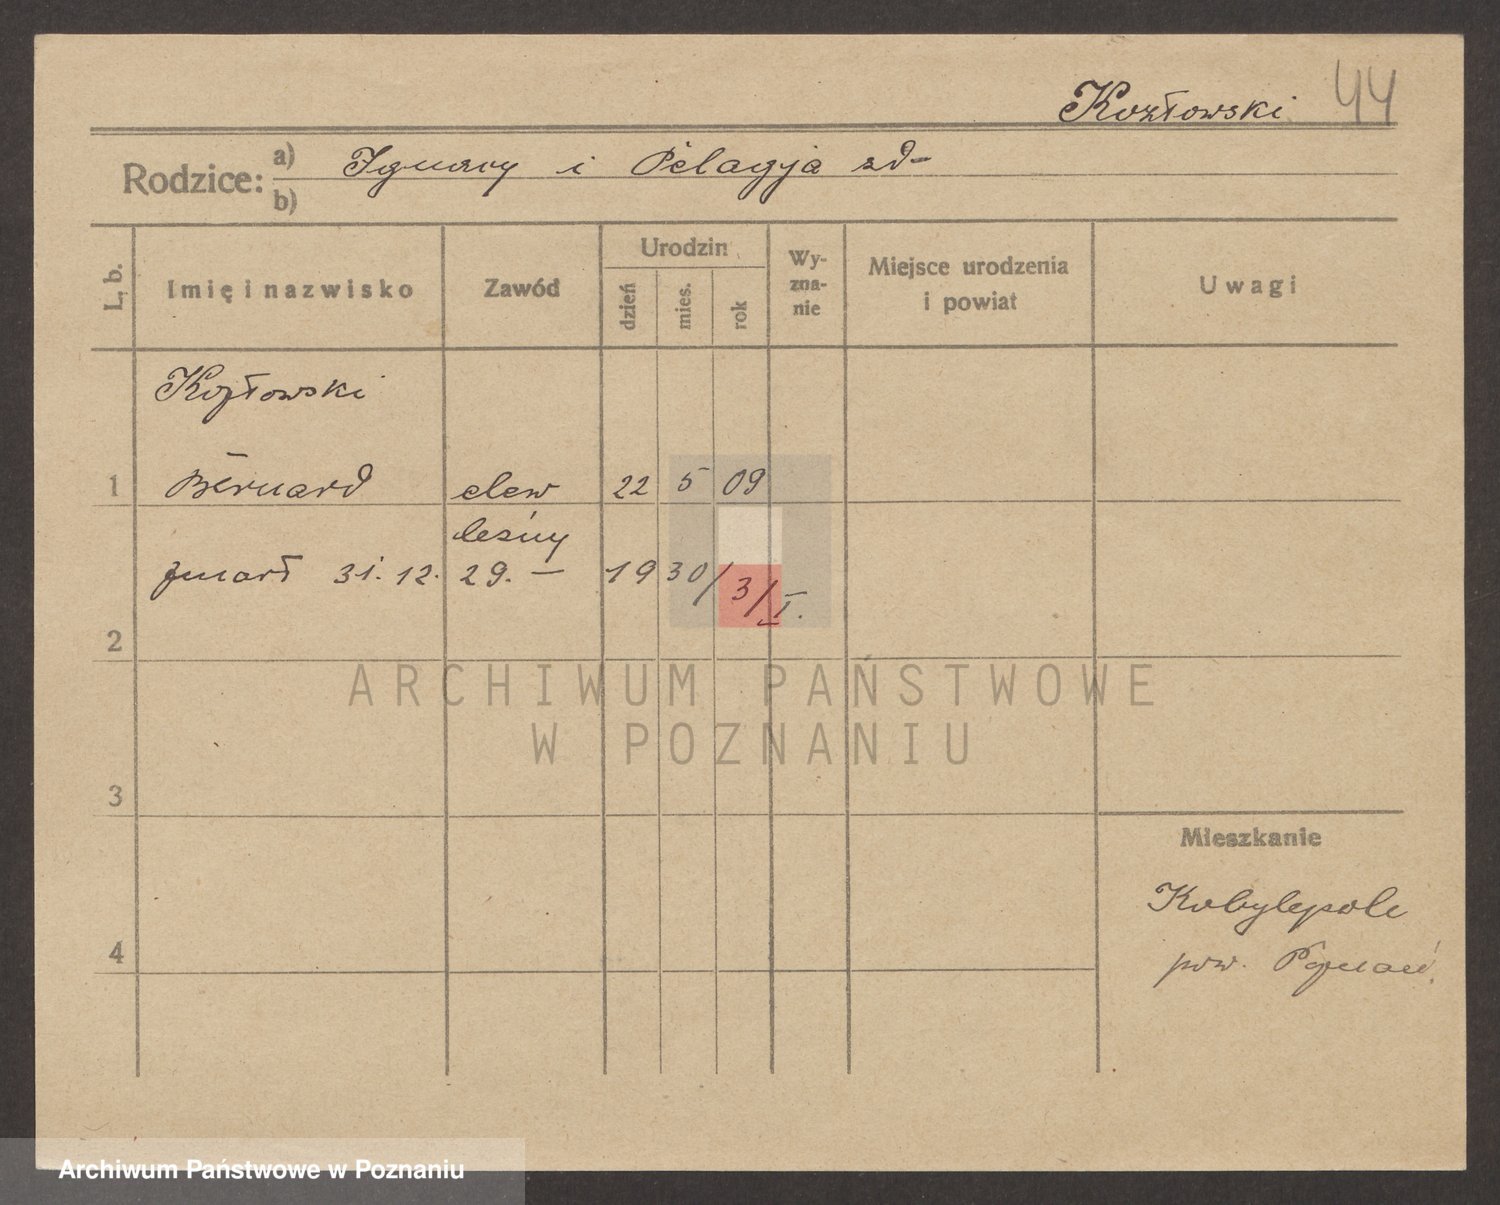 Kozłowski 44
Rodzice: a) Ignacy i Pelagja zd-
b)
L, b. Imię i nazwisko Zawód Urodzin dzień mies. rok Wy-zna-nie Miejsce urodzenia i powiat Uwagi
Kozłowski
1 Bernard elew 22 5 09
leśny
zmarł 31. 12. 29. — 19 30/3/I.
2
ARCHIWUM PAŃSTWOWE
W POZNANIU
3
Mieszkanie
Kobylepole
4
pow. Poznań.
Archiwum Państwowe w Poznaniu